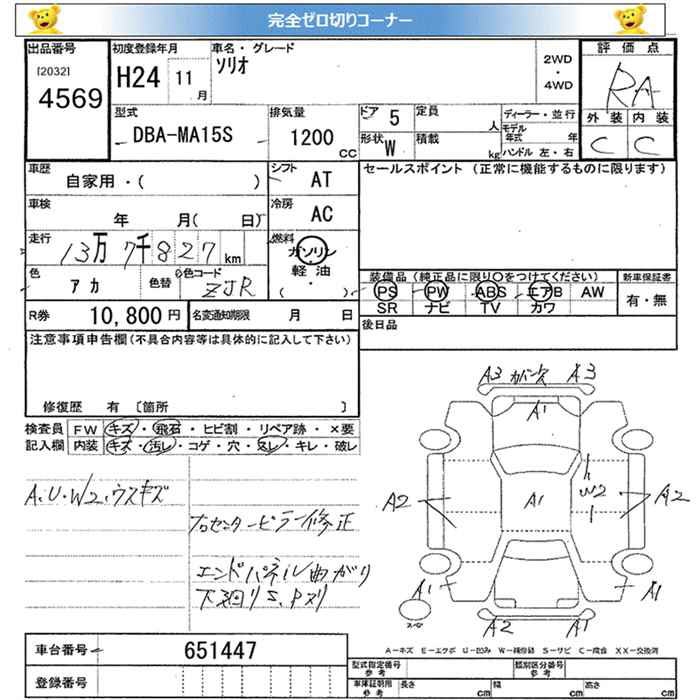 完全ゼロ切りコーナー
出品番号
[2032]
4569
初度登録年月
H24 11月
車名・グレード
ソリオ
2WD
・
4WD
評価点
RA
外装 内装
C C
型式
DBA-MA15S
排気量
1200 CC
ドア 5
定員 人
形状 W
積載 kg
ディーラー・並行
モデル年式 年
ハンドル 左・右
車歴
自家用・( )
シフト AT
セールスポイント (正常に機能するものに限ります)
車検
年 月( 日)
冷房 AC
走行
13万7千827km
燃料
ガソリン
軽油
( ・ )
色
アカ
色替
色コード
ZJR
装備品(純正品に限り○をつけてください)
PS PW ABS エアB AW
SR ナビ TV カワ
新車保証書
有・無
R券 10,800円
名変通知期限 月 日
後日品
注意事項申告欄(不具合内容等は具体的に記入して下さい)
修復歴 有 〔箇所 〕
検査員記入欄
FW キズ・飛石・ヒビ割・リペア跡・×要
内装 キズ・汚レ・コゲ・穴・スレ・キレ・破レ
A.U.W2.ウスキズ
フロセンターピラー修正
エンドパネル曲がり
下廻りS.Pスリ
A3 ガバース A3
A1
A2 A1 W2 A2
A1 A1
スペア
A2 A1
車台番号 651447
登録番号
A−キズ E−エクボ U−凹み W−補修跡 S−サビ C−腐食 XX−交換済
型式指定番号 参考
類別区分番号 参考
車庫証明用 参考
長さ cm 幅 cm 高さ cm